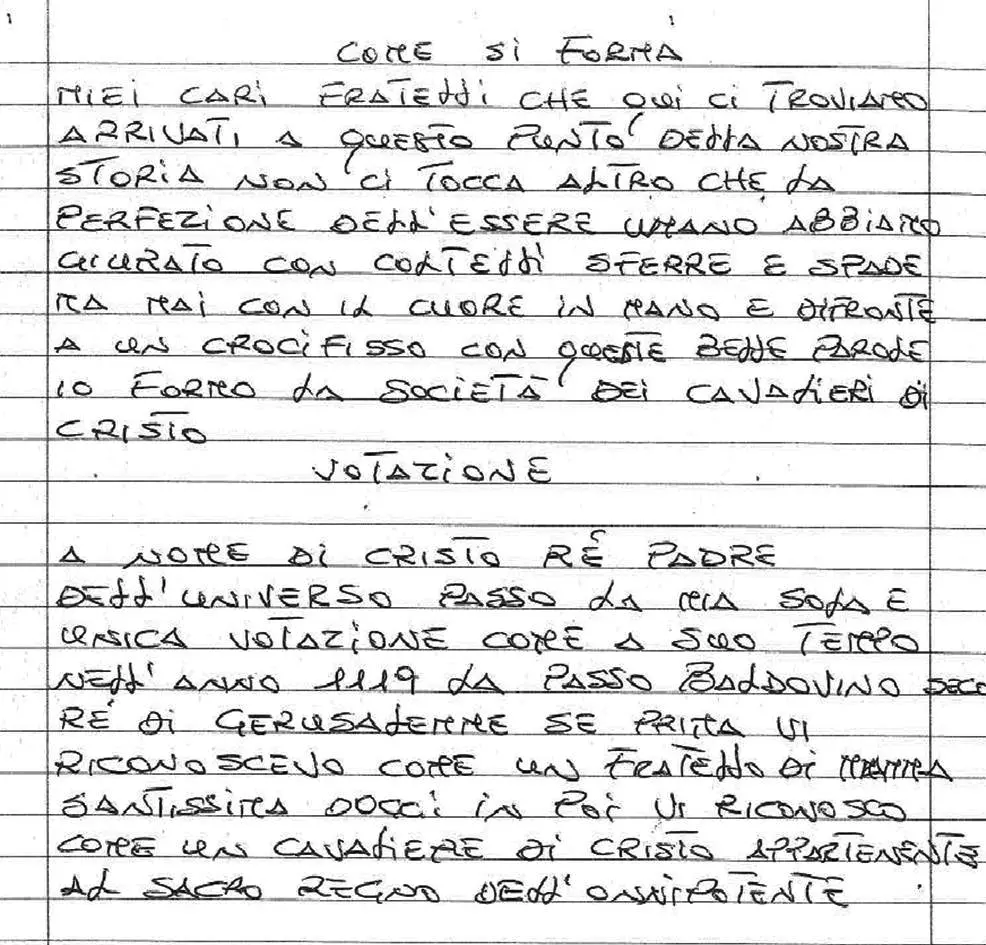 COME Si FORMA
MIEI CARi FRATELLi CHE QUi Ci TROVIAMO
ARRIVATI A QUESTO PUNTO DELLA NOSTRA
STORiA NON Ci TOCCA ALTRO CHE LA
PERFEZIONE DELL'ESSERE UMANO ABBiAMO
GIURATO CON COLTELLi SFERRE E SPADE
MA MAI CON IL CUORE IN MANO E DIFRONTE
A UN CROCIFISSO CON QUESTE BELLE PAROLE
IO FORMO LA SOCIETÀ DEI CAVALIERI Di
CRISTO
VOTAZiONE
A NOME Di CRISTO RÉ PADRE
DELL'UNIVERSO PASSO LA MIA SOLA E
UNICA VOTAZIONE COME A SUO TEMPO
NELL'ANNO 1119 LA PASSO BALDOVINO SECO
RÉ Di GERUSALEMME SE PRIMA VI
RICONOSCEVO COME UN FRATELLO Di MAMMA
SANTISSIMA DOGGi iN POi Vi RICONOSCO
COME UN CAVALIERE Di CRISTO APPARTENENTE
AL SACRO REGNO DELL'ONNIPOTENTE